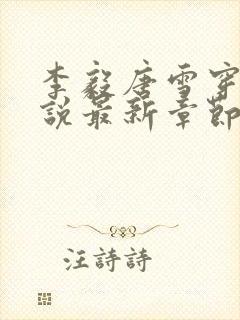 李毅唐雪穿
說最新章節
汪詩詩